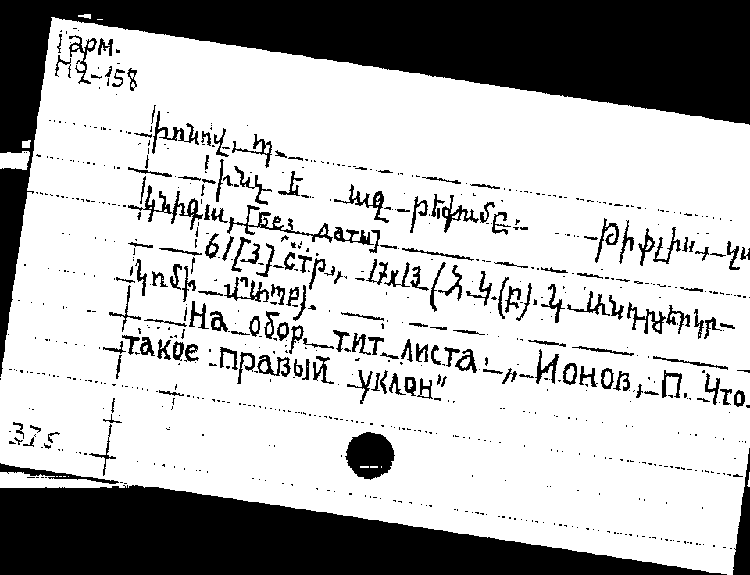 1 арм.
МՉ-158
Իոնով, Պ.
Ինչ է աջ թեքումը. Թիֆլիս,
Կնիգա, [Без даты]
61[3] стр., 17x13 (Հ. Կ.(բ). Կ.
Կոմի.
На обор. тит. листа: „Ионов, П. Что
такое правый уклон“
375